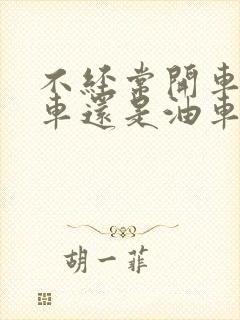 不經常開車
車還是油車
胡一菲